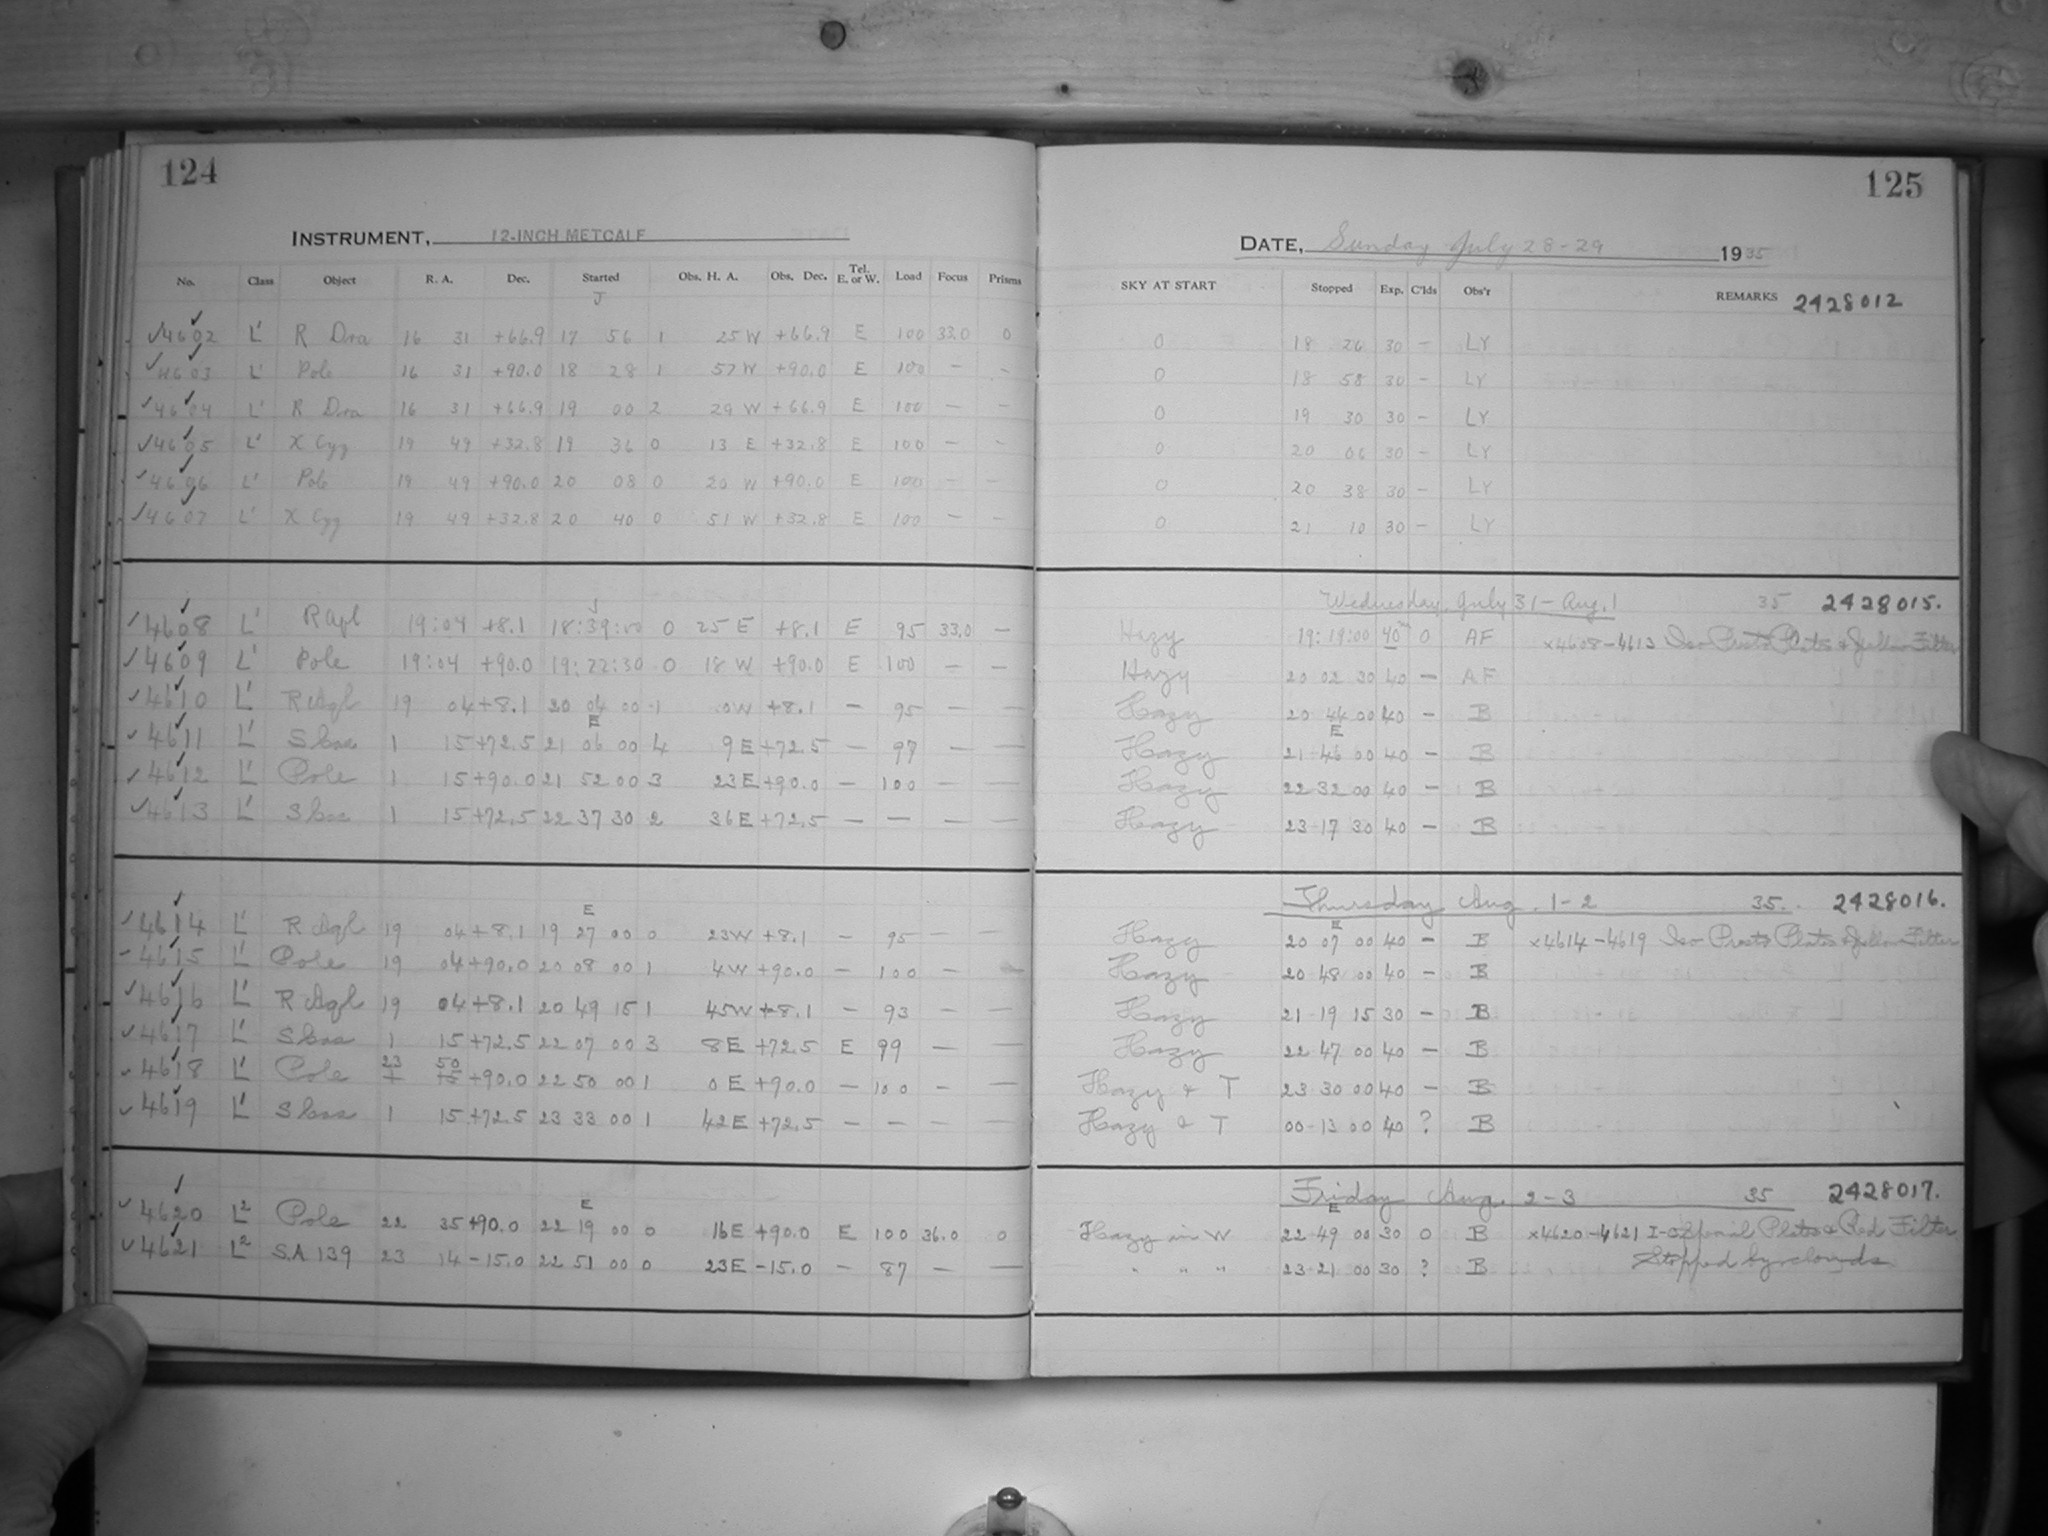 124
INSTRUMENT, 12-INCH METCALF
No. Class Object R. A. Dec. Started Obs. H. A. Obs. Dec. Tel. E. or W. Load Focus Prisms
J
4602 L' R Dra 16 31 +66.9 17 56 1 25 W +66.9 E 100 33.0 0
4603 L' Pole 16 31 +90.0 18 28 1 57 W +90.0 E 100 — –
4604 L' R Dra 16 31 +66.9 19 00 2 29 W +66.9 E 100 — –
4605 L' X Cyg 19 49 +32.8 19 36 0 13 E +32.8 E 100 — –
4606 L' Pole 19 49 +90.0 20 08 0 20 W +90.0 E 100 — –
4607 L' X Cyg 19 49 +32.8 20 40 0 51 W +32.8 E 100 — –
J
4608 L' R Aql 19:04 +8.1 18:39:00 0 25 E +8.1 E 95 33.0 —
4609 L' Pole 19:04 +90.0 19:22:30 0 18 W +90.0 E 100 — —
4610 L' R Aql 19 04 +8.1 20 04 00 1 0W +8.1 — 95 — —
E
4611 L' S Cas 1 15 +72.5 21 06 00 4 9 E +72.5 — 97 — —
4612 L' Pole 1 15 +90.0 21 52 00 3 23E +90.0 — 100 — —
4613 L' S Cas 1 15 +72.5 22 37 30 2 36 E +72.5 — — — —
E
4614 L' R Aql 19 04 +8.1 19 27 00 0 23W +8.1 — 95 — —
4615 L' Pole 19 04 +90.0 20 08 00 1 4W +90.0 — 100 — —
4616 L' R Aql 19 04 +8.1 20 49 15 1 45W +8.1 — 93 — —
4617 L' S Cas 1 15 +72.5 22 07 00 3 8E +72.5 E 99 — —
23 50
4618 L' Pole 1 15 +90.0 22 50 00 1 0 E +90.0 — 100 — —
4619 L' S Cas 1 15 +72.5 23 33 00 1 42E +72.5 — — — —
E
4620 L² Pole 22 35 +90.0 22 19 00 0 16E +90.0 E 100 36.0 0
4621 L² S.A 139 23 14 -15.0 22 51 00 0 23E -15.0 — 87 — —
125
DATE, Sunday July 28-29 1935
SKY AT START Stopped Exp. C'lds Obs'r REMARKS 2428012
0 18 26 30 — LY
0 18 58 30 – LY
0 19 30 30 – LY
0 20 06 30 – LY
0 20 38 30 – LY
0 21 10 30 – LY
Wednesday, July 31 – Aug. 1 35 2428015.
Hazy 19:19:00 40 0 AF ×4608-4613 Iso Presto Plates & Yellow Filter
Hazy 20 02 30 40 — AF
Hazy 20 44 00 40 – B
E
Hazy 21-46 00 40 – B
Hazy 22-32 00 40 – B
Hazy 23-17 30 40 – B
Thursday Aug. 1-2 35. 2428016.
E
Hazy 20 07 00 40 – B ×4614-4619 Iso Presto Plates & Yellow Filter
Hazy 20 48 00 40 – B
Hazy 21-19 15 30 – B
Hazy 22-47 00 40 – B
Hazy & T 23-30 00 40 – B
Hazy & T 00-13 00 40 ? B
Friday Aug. 2-3 35 2428017.
E
Hazy in W 22-49 00 30 0 B ×4620-4621 Plates & Red Filter
" " " 23-21 00 30 ? B Stopped by clouds